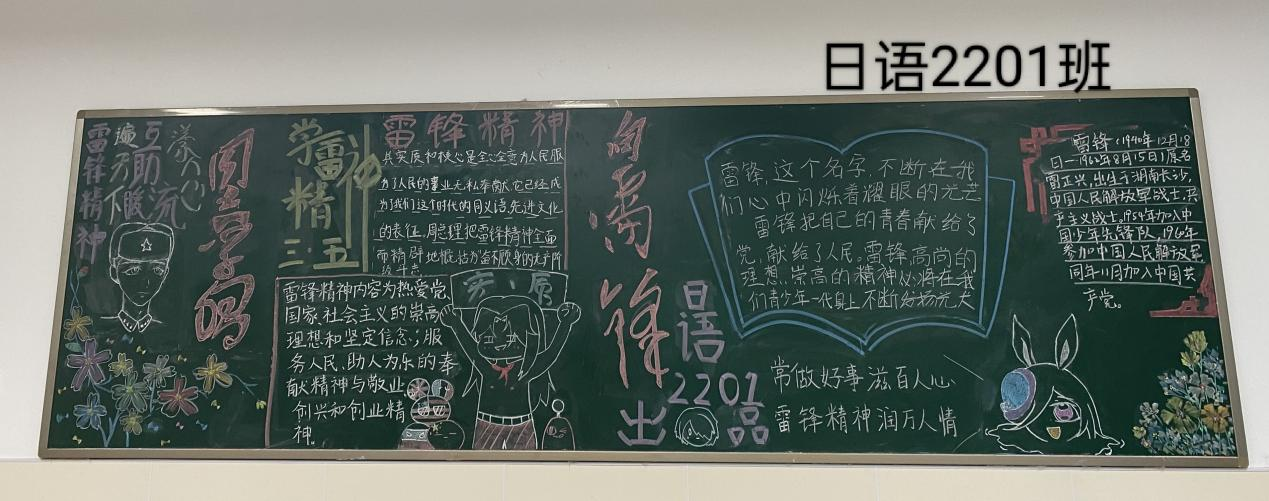 日语2201班
雷锋精神
遍万
互助暖流
学雷
精神
三·五
雷锋精神
其实质和核心是全心全意为人民服
为了人民的事业无私奉献,它已经成
为我们这个时代的同义语,先进文化
的表征,周总理把雷锋精神全面
而精辟地概括为
雷锋精神内容为热爱党,
国家,社会主义的崇高
理想和坚定信念;服
务人民,助人为乐的奉
献精神与敬业
创兴和创业精
神。
向雷锋
日语
2201
出品
雷锋,这个名字,不断在我
们心中闪烁着耀眼的光芒
雷锋把自己的青春献给了
党,献给了人民。雷锋高尚的
理想,崇高的精神必将在我
们青少年一代身上不断发扬光大
常做好事滋百人心
雷锋精神润万人情
雷锋(1940年12月18
日—1962年8月15日)原名
雷正兴,出生于湖南长沙,
中国人民解放军战士,共
产主义战士,1954年加入中
国少年先锋队,1960年
参加中国人民解放军
同年11月加入中国共
产党。